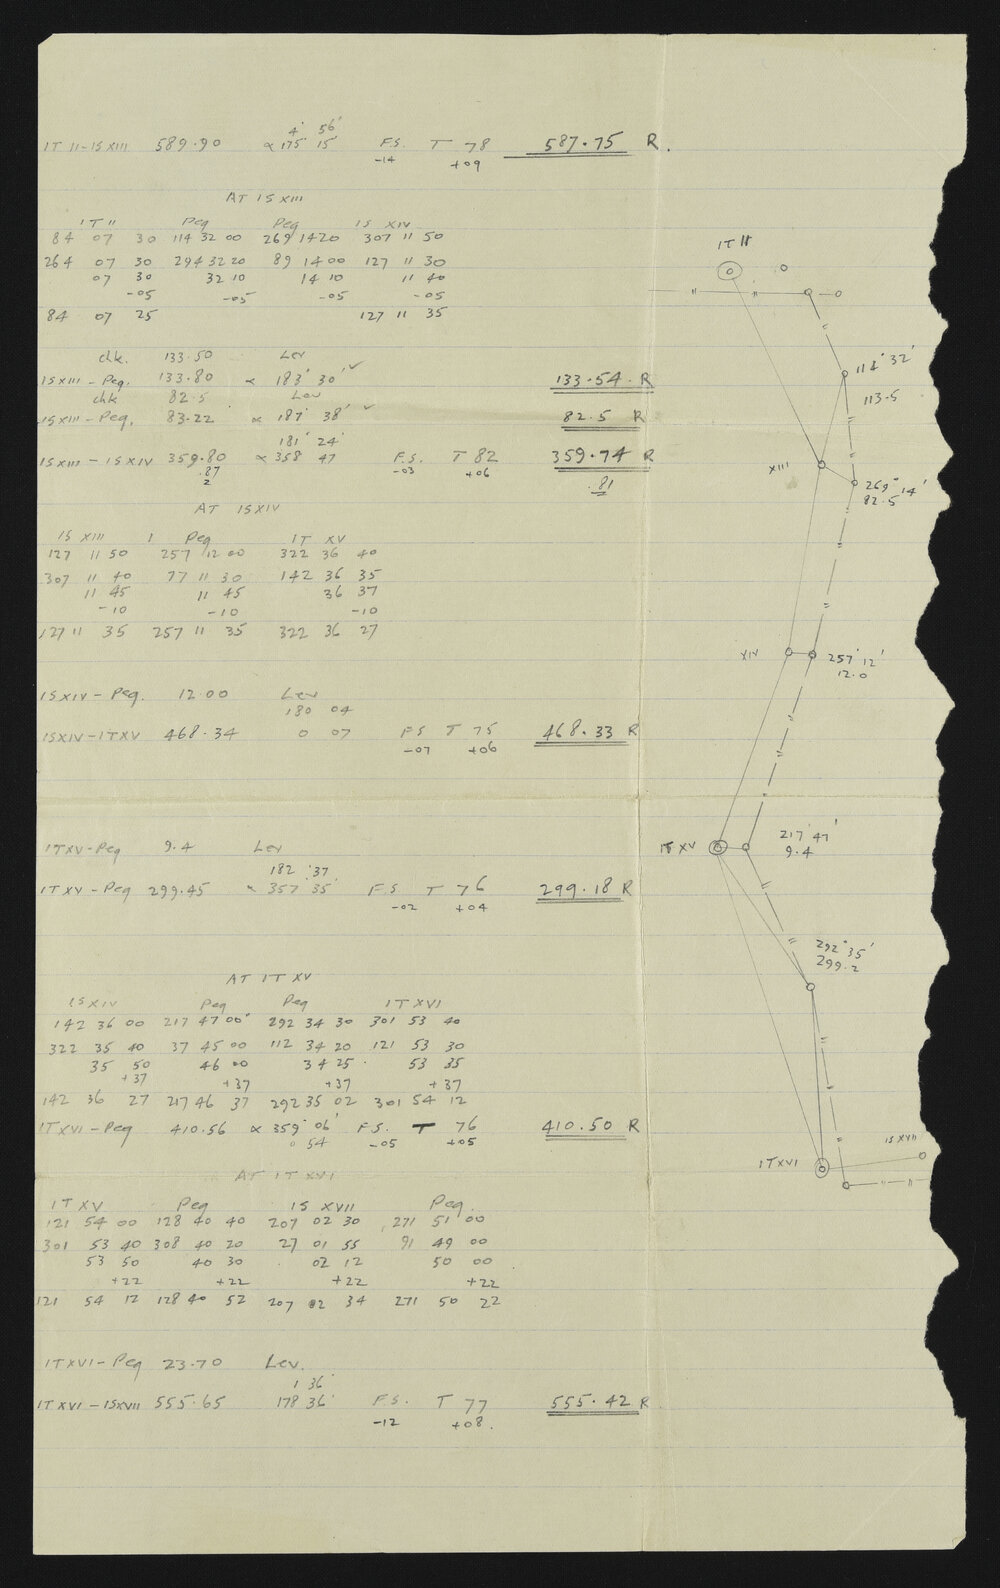 4° 56'
IT II-IS XIII 589.90 ∝ 175° 15' F.S. T 78 587.75 R.
-14 +09
AT IS XIII
IT II Peg Peg IS XIV
84 07 30 114 32 00 269 14 20 307 11 50
264 07 30 294 32 20 89 14 00 127 11 30
07 30 32 10 14 10 11 40
-05 -05 -05 -05
84 07 25 127 11 35
chk. 133.50 Lev
IS XIII - Peg. 133.80 ∝ 183° 30' ✓ 133.54 R
chk 82.5 Lev
IS XIII - Peg. 83.22 ∝ 187° 38' ✓ 82.5 R
181° 24'
IS XIII - IS XIV 359.80 ∝ 358 47 F.S. T 82 359.74 R
.87 -03 +06 .81
2
AT IS XIV
IS XIII Peg IT XV
127 11 50 257 12 00 322 36 40
307 11 40 77 11 30 142 36 35
11 45 11 45 36 37
-10 -10 -10
127 11 35 257 11 35 322 36 27
IS XIV - Peg. 12.00 Lev
180 04
IS XIV - IT XV 468.34 0 07 FS T 75 468.33 R
-07 +06
IT XV - Peg 9.4 Lev
182° 37'
IT XV - Peg 299.45 ∝ 357 35' F.S. T 76 299.18 R
-02 +04
AT IT XV
IS XIV Peg Peg IT XVI
142 36 00 217 47 00 292 34 30 301 53 40
322 35 40 37 45 00 112 34 20 121 53 30
35 50 46 00 34 25 53 35
+37 +37 +37 +37
142 36 27 217 46 37 292 35 02 301 54 12
IT XVI - Peg 410.56 ∝ 359° 06' F.S. T 76 410.50 R
0 54 -05 +05
AT IT XVI
IT XV Peg IS XVII Peg
121 54 00 128 40 40 207 02 30 271 51 00
301 53 40 308 40 20 27 01 55 91 49 00
53 50 40 30 02 12 50 00
+22 +22 +22 +22
121 54 12 128 40 52 207 02 34 271 50 22
IT XVI - Peg 23.70 Lev.
1 36'
IT XVI - IS XVII 555.65 178 36' F.S. T 77 555.42 R
-12 +08.
IT II
114° 32'
113.5
XIII
269° 14'
82.5
XIV
257° 12'
12.0
IT XV
217° 47'
9.4
292° 35'
299.2
IS XVII
IT XVI